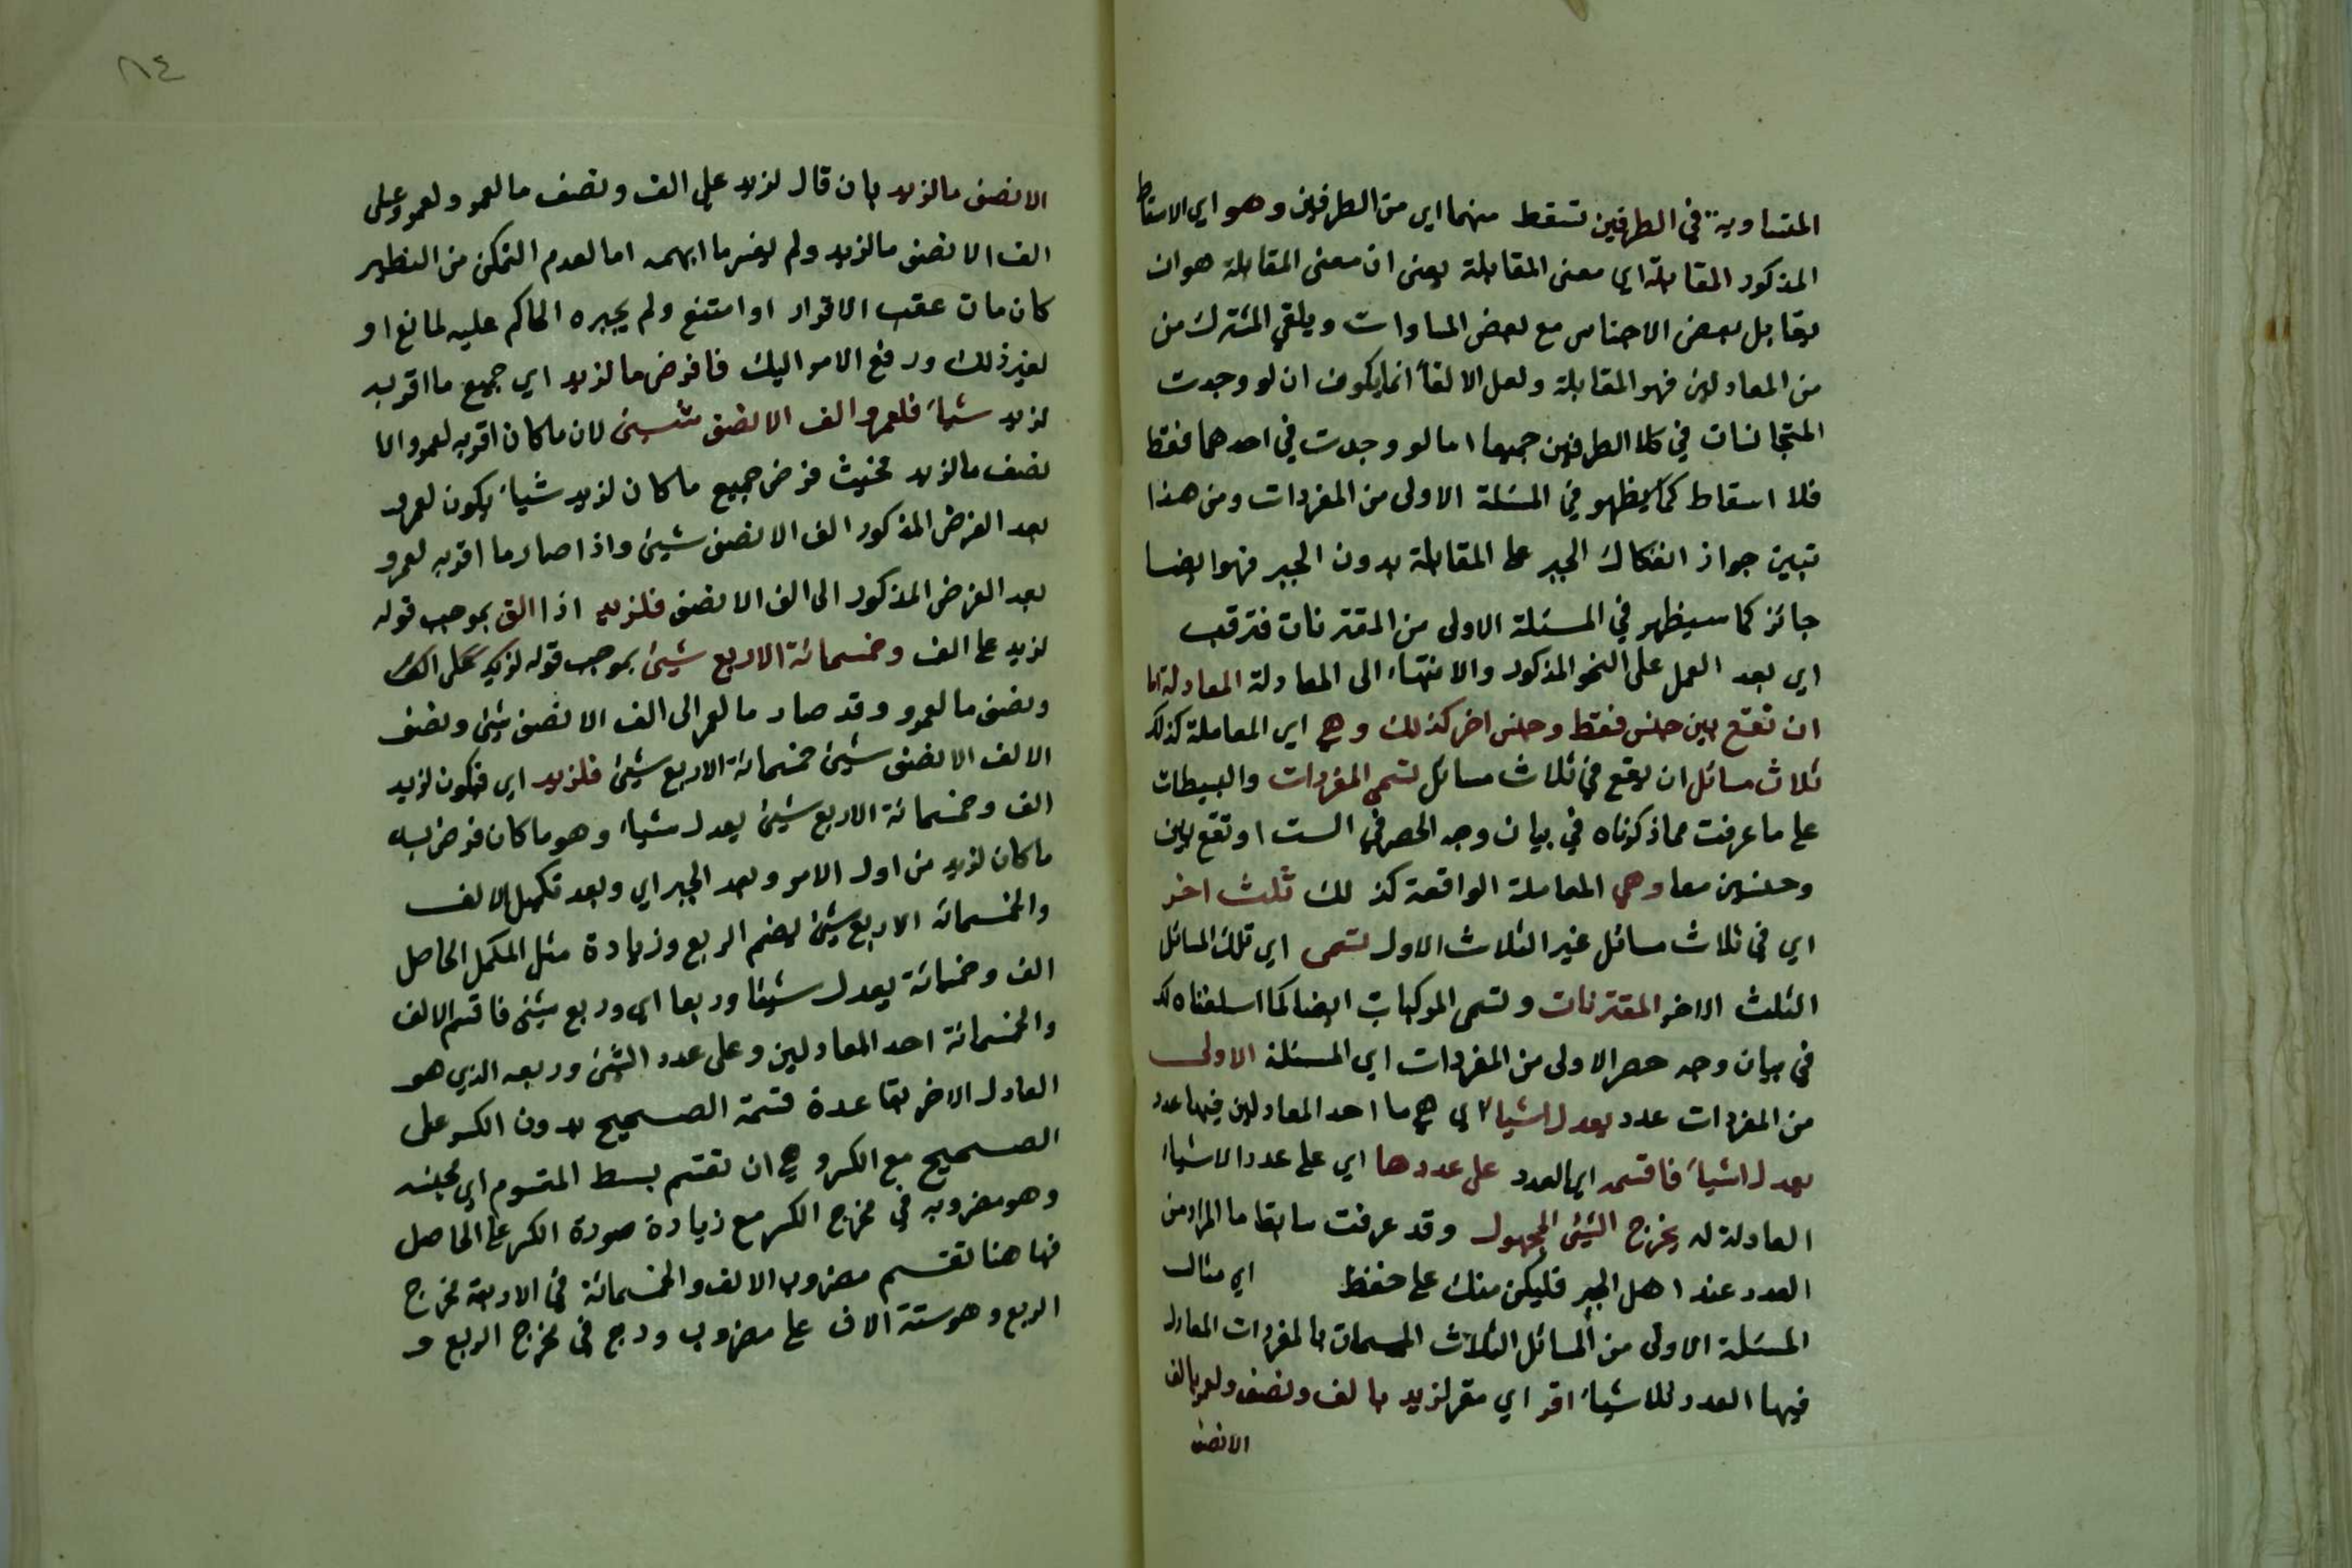 المتساوية في الطرفين تسقط منهما اي من الطرفين وهو اي الاسقاط
المذكور المقابلة اي معنى المقابلة يعنى ان معنى المقابلة هو ان
يقابل بعض الاجناس مع بعض المساوات ويلقي المشترك من
من المعادلين فهو المقابلة ولعل الالقاء انما يكون ان لو وجدت
المتجانسات في كلا الطرفين جميعا اما لو وجدت في احدهما فقط
فلا اسقاط كما يظهر في المسئلة الاولى من المفردات ومن هذا
تبين جواز انفكاك الجبر على المقابلة بدون الجبر فهو ايضا
جائز كما سيظهر في المسئلة الاولى من المقترنات فترقب
اي بعد العمل على النحو المذكور والانتهاء الى المعادلة المعادلة اما
ان تقع بين جنس فقط وجنس اخر كذلك وهي اي المعاملة كذلك
ثلاث مسائل ان يقع في ثلاث مسائل تسمى المفردات والبسيطات
على ما عرفت مما ذكرناه في بيان وجه الحصر في الست او تقع بين
وجنسين معا وهي المعاملة الواقعة كذلك ثلث اخر
اي في ثلاث مسائل غير الثلاث الاول تسمى اي تلك المسائل
الثلث الاخر المقترنات وتسمى المركبات ايضا كما اسلفناه لك
في بيان وجه حصر الاولى من المفردات اي المسئلة الاولى
من المفردات عدد يعدل اشياء اي هي ما احد المعادلين فيها عدد
يعدل اشياء فاقسمه اي العدد على عددها اي على عدد الاشياء
العادلة له يخرج الشيئ المجهول وقد عرفت سابقا ما المراد من
العدد عند اهل الجبر فليكن منك على حفظ اي مثال
المسئلة الاولى من المسائل الثلاث المسمات بالمفردات المعادل
فيها العدد للاشياء اقر اي مقر لزيد بالف ونصف ولعمرو بالف
الا نصف
٨٤
الا نصف ما لزيد بان قال لزيد على الف ونصف ما لعمرو ولعمرو على
الف الا نصف ما لزيد ولم يفسر ما ابهمه اما لعدم التمكن من
كان مات عقب الاقرار او امتنع ولم يجبره الحاكم عليه لمانع او
لغير ذلك ورفع الامر اليك فافرض ما لزيد اي جميع ما اقر به
لزيد شياء فلعمرو الف الا نصف شيئ لان ما كان اقر به لعمرو الا
نصف ما لزيد فحيث فرض جميع ما كان لزيد شياء يكون لعمرو
بعد الفرض المذكور الف الا نصف شيئ واذا صار ما اقر به لعمرو
بعد الفرض المذكور الى الف الا نصف فلزيد اذا الف بموجب قوله
لزيد على الف وخمسمائة الا ربع شيئ بموجب قوله لزيد على الف
ونصف ما لعمرو وقد صار ما لعمرو الى الف الا نصف شيئ ونصف
الالف الا نصف شيئ خمسمائة الا ربع شيئ فلزيد اي فيكون لزيد
الف وخمسمائة الا ربع شيئ يعدل شياء وهو ما كان فرض به
ما كان لزيد من اول الامر وبعد الجبر اي وبعد تكميل الالف
والخمسمائة الا ربع شيئ بضم الربع وزيادة مثل المكمل الحاصل
الف وخمسمائة يعدل شيئا وربعا اي وربع شيئ فاقسم الالف
والخمسمائة احد المعادلين وعلى عدد الشيئ وربعه الذي هو
العادل الاخر بقاعدة قسمة الصحيح بدون الكسر على
الصحيح مع الكسر وهي ان تقسم بسط المقسوم اي مجنسه
وهو مضروبه في مخرج الكسر مع زيادة صورة الكسر على الحاصل
فها هنا تقسم مضروب الالف والخمسمائة في الاربعة مخرج
الربع وهو ستة الاف على مضروب ودرج في مخرج الربع و